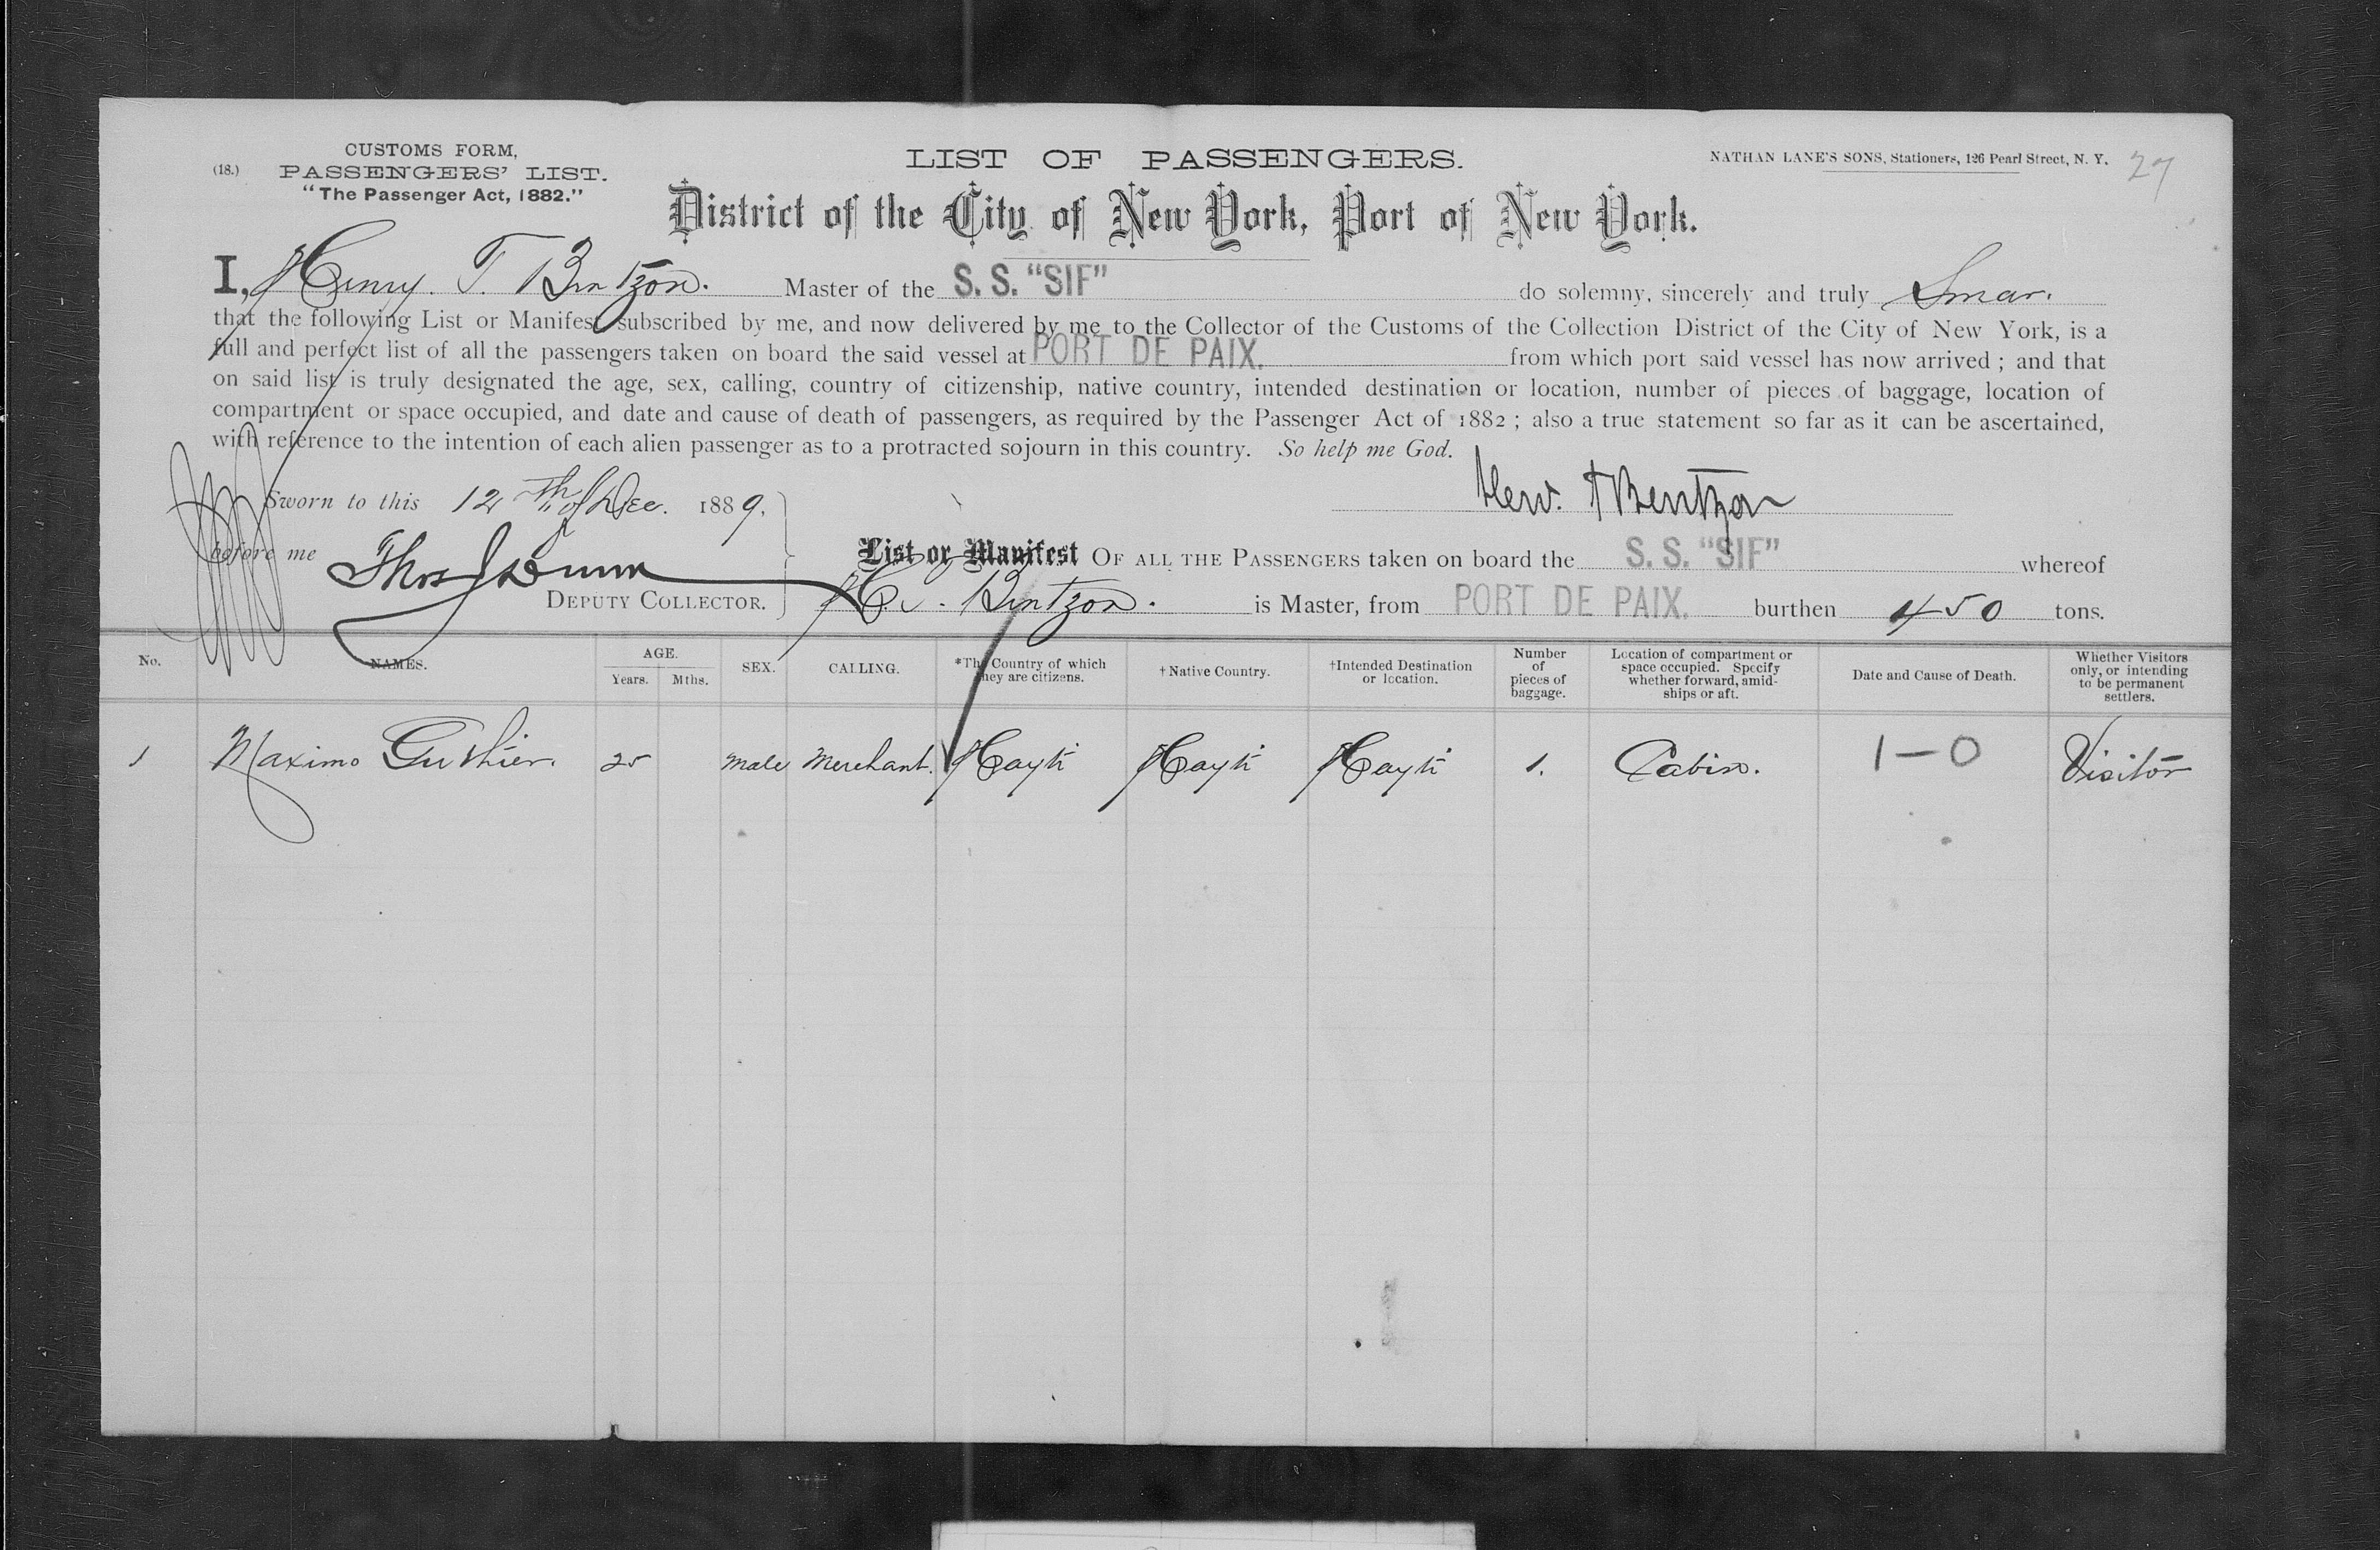 CUSTOMS FORM,
(18.) PASSENGERS' LIST.
"The Passenger Act, 1882."
LIST OF PASSENGERS.
NATHAN LANE'S SONS, Stationers, 126 Pearl Street, N. Y. 27
District of the City of New York, Port of New York.
I, Henry. T. Bentzon. Master of the S. S. "SIF" do solemny, sincerely and truly Swear.
that the following List or Manifest subscribed by me, and now delivered by me to the Collector of the Customs of the Collection District of the City of New York, is a
full and perfect list of all the passengers taken on board the said vessel at PORT DE PAIX. from which port said vessel has now arrived ; and that
on said list is truly designated the age, sex, calling, country of citizenship, native country, intended destination or location, number of pieces of baggage, location of
compartment or space occupied, and date and cause of death of passengers, as required by the Passenger Act of 1882 ; also a true statement so far as it can be ascertained,
with reference to the intention of each alien passenger as to a protracted sojourn in this country. So help me God.
Sworn to this 12 Th of Dec. 1889,
Henr. T Bentzon
before me Thos J Dunn
DEPUTY COLLECTOR.
List or Manifest OF ALL THE PASSENGERS taken on board the S. S. "SIF" whereof
Bentzon. is Master, from PORT DE PAIX. burthen 450 tons.
No. NAMES. AGE. Years. Mths. SEX. CALLING. *The Country of which they are citizens. †Native Country. †Intended Destination or location. Number of pieces of baggage. Location of compartment or space occupied. Specify whether forward, amidships or aft. Date and Cause of Death. Whether Visitors only, or intending to be permanent settlers.
1 Maximo 25 male Merchant. Hayti Hayti Hayti 1. Cabin. 1-0 Visitor